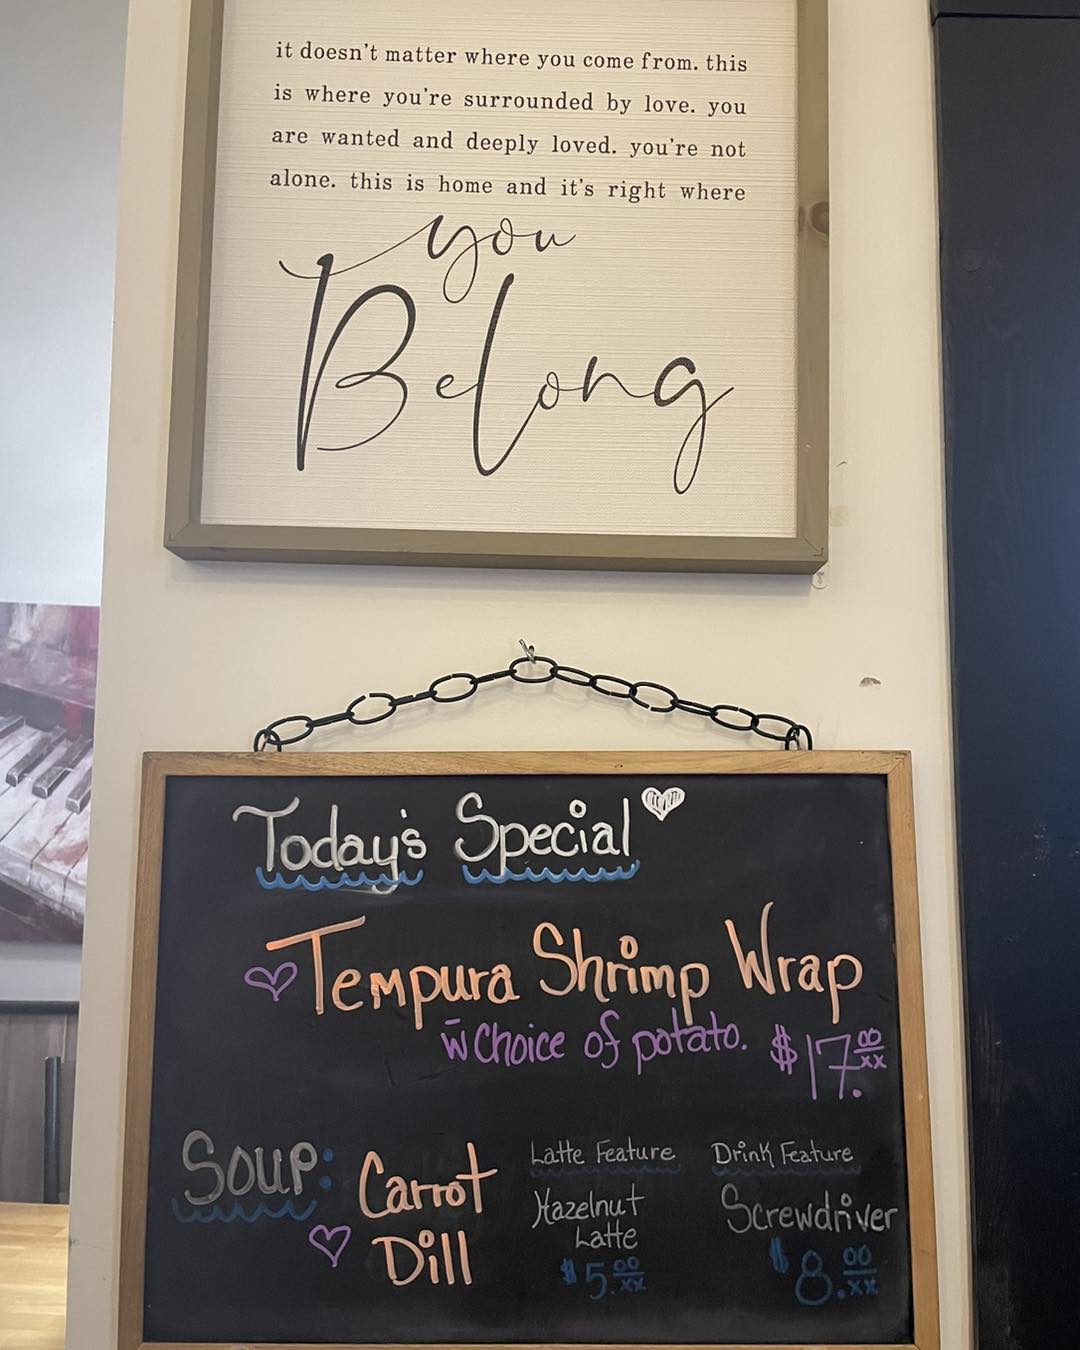 it doesn't matter where you come from. this
is where you're surrounded by love. you
are wanted and deeply loved. you're not
alone. this is home and it's right where
you
Belong
Today's Special
Tempura Shrimp Wrap
w̄ choice of potato. $17.00/xx
Soup: Carrot
Dill
Latte Feature
Hazelnut
Latte
$5.00/xx
Drink Feature
Screwdriver
$8.00/xx